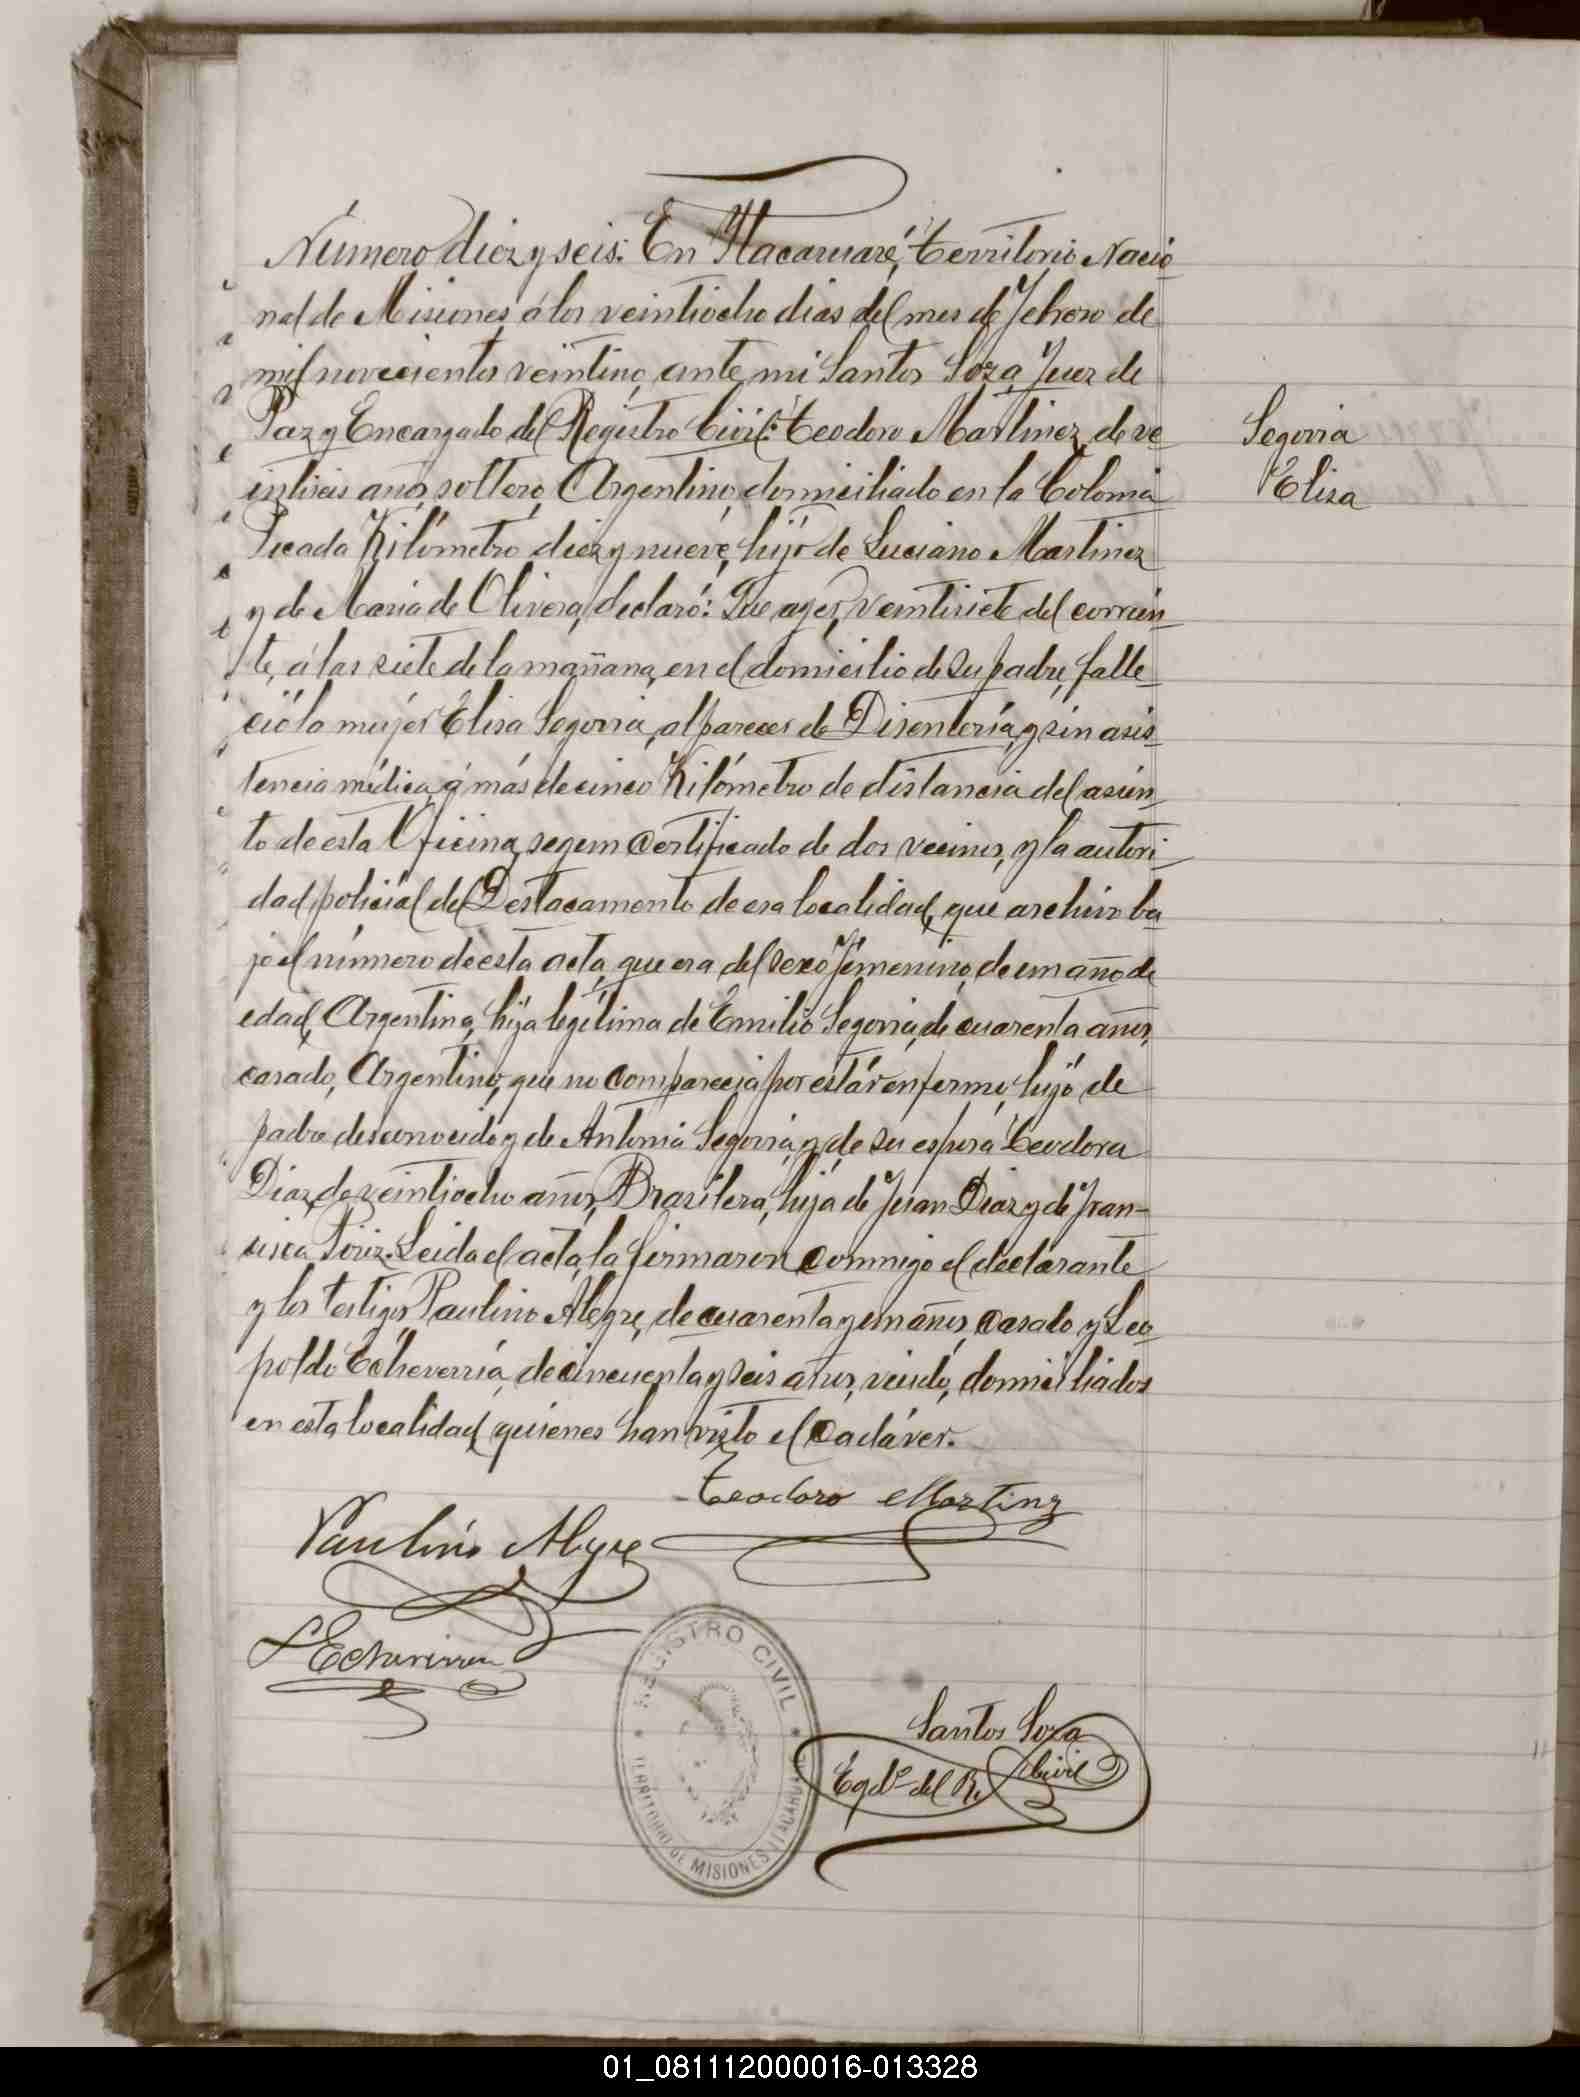 Número diez y seis: En Itacaruaré, territorio Nacio
nal de Misiones, á los veintiocho dias del mes de Febrero de
mil novecientos veintiuno, ante mi Santos Soza, Juez de
Paz y Encargado del Registro Civil: teodoro Martinez, de ve
intiseis años, soltero, Argentino, domiciliado en la Colonia
Picada Kilómetro diez y nueve, hijo de Luciano Martinez
y de Maria de Olivera, declaró: Que ayer, veintisiete del corrien
te, á las siete de la mañana, en el domicilio de su padre, falle
ció la mujer Elisa Segovia, al parecer de Disentería, y sin asis
tencia médica, á más de cinco Kilómetro de distancia del asien
to de esta Oficina, segun certificado de dos vecinos, y la autori
dad policial del Destacamento de esa localidad, que archivo ba
jo el número de esta acta, que era del sexo femenino, de un año de
edad, Argentina, hija legítima de Emilio Segovia, de cuarenta años,
casado, Argentino, que no comparecia por estár enfermo, hijo de
padre desconocido y de Antonia Segovia, y de su esposa teodora
Diaz, de veintiocho años, Brasilera, hija de Juan Diaz y de Fran-
cisca Píriz. Leida el acta, la firmaron conmigo el declarante
y los testigos Paulino Alegre, de cuarenta y un años, casado y Leo
poldo Echeverría, de cincuenta y seis años, viudo, domiciliados
en esta localidad, quienes han visto el Cadáver.
Segovia
Elisa
Teodoro Martinz
Paulino Alegre
L Echeverria
REGISTRO CIVIL
TERRITORIO DE MISIONES ITACARUARE
Santos Soza
Egdo del R. Civil
01_081112000016-013328